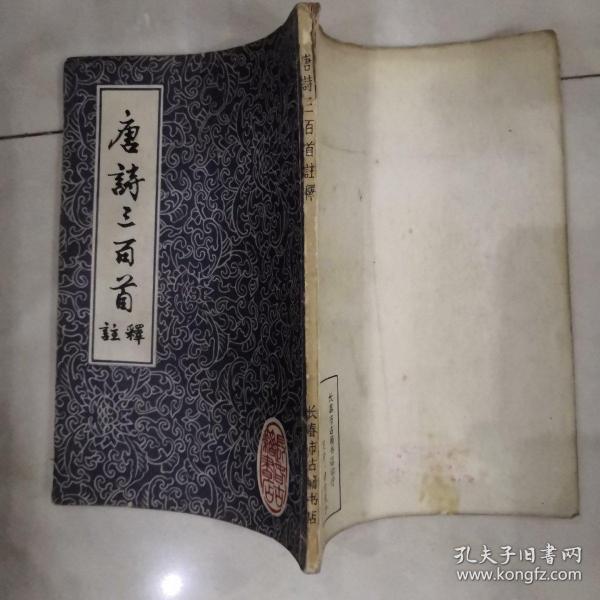 唐詩三百首
註釋
唐詩三百首註釋
长春市古籍书店
孔夫子旧书网
www.kongfz.com